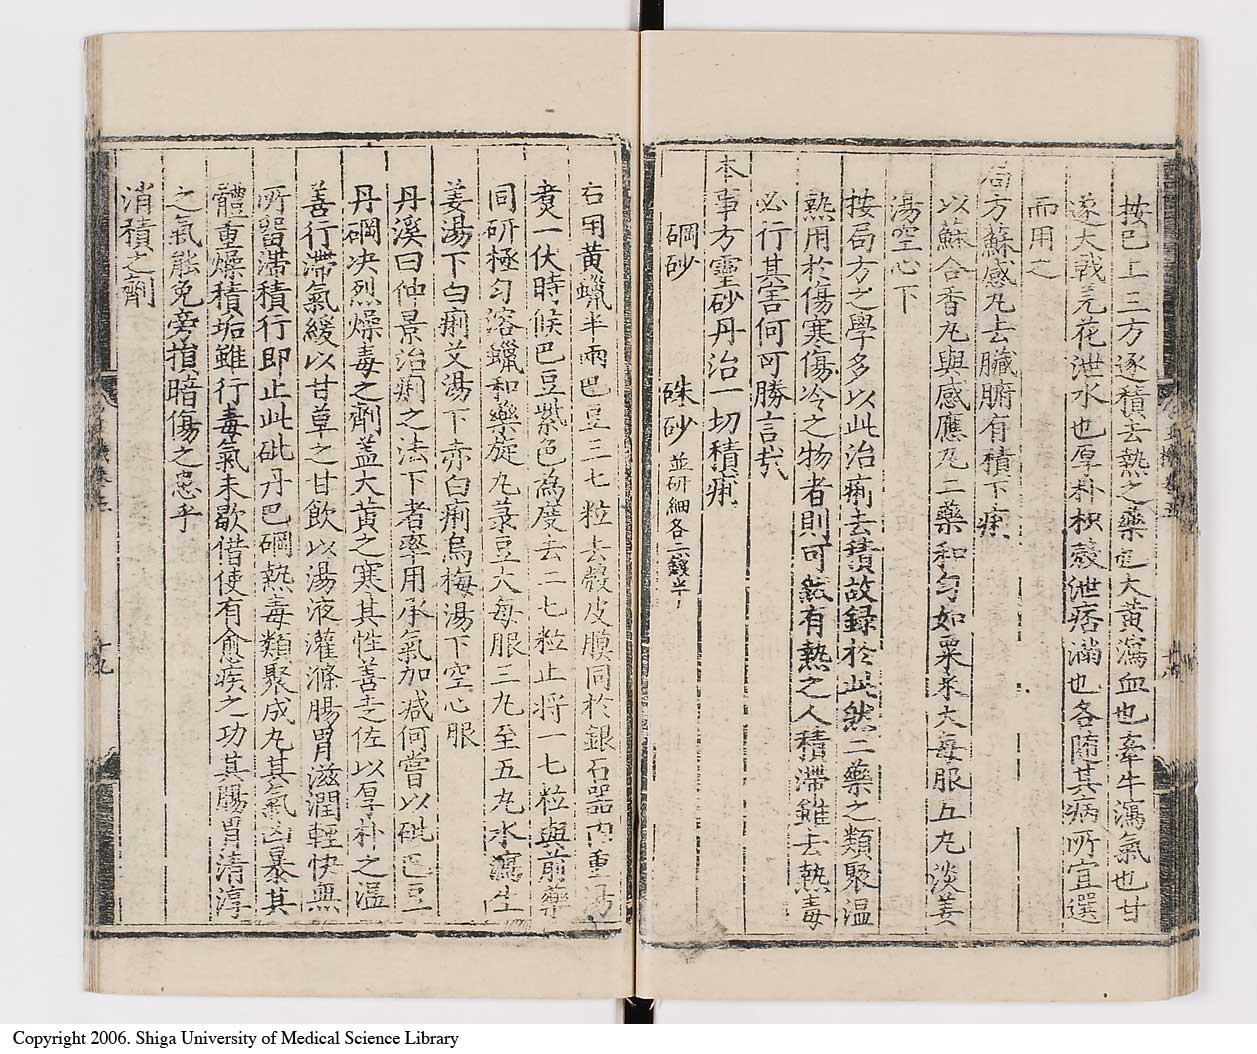 按已上三方逐積去熱之藥也大黃瀉血也牽牛瀉氣也甘
遂大戟芫花泄水也厚朴枳殼泄痞滿也各隨其病所宜選
而用之
局方蘇感丸去臟腑有積下痢
以蘇合香丸與感應丸二藥和勻如粟米大每服五丸淡姜
湯空心下
按局方之學多以此治痢去積故録於此然二藥之類聚溫
熱用於傷寒傷冷之物者則可茲有熱之人積滯雖去熱毒
必行其害何可勝言哉
本事方靈砂丹治一切積痢
硇砂 硃砂 並研細各二錢半
右用黃蠟半兩巴豆三七粒去殼皮膜同於銀石器內重湯
煑一伏時候巴豆紫色為度去二七粒止将一七粒與前藥
同研極勻溶蠟和藥旋丸菉豆大每服三丸至五丸水瀉生
姜湯下白痢艾湯下赤白痢烏梅湯下空心服
丹溪曰仲景治痢之法下者率用承氣加减何嘗以砒巴豆
丹硇决烈燥毒之劑盖大黃之寒其性善走佐以厚朴之溫
善行滯氣緩以甘草之甘飲以湯液灌滌腸胃滋潤輕快無
所留滯積行即止此砒丹巴硇熱毒類聚成丸其氣凶暴其
體重燥積垢雖行毒氣未歇借使有愈疾之功其腸胃清淳
之氣能免旁損暗傷之患乎
消積之劑
十九
Copyright 2006. Shiga University of Medical Science Library